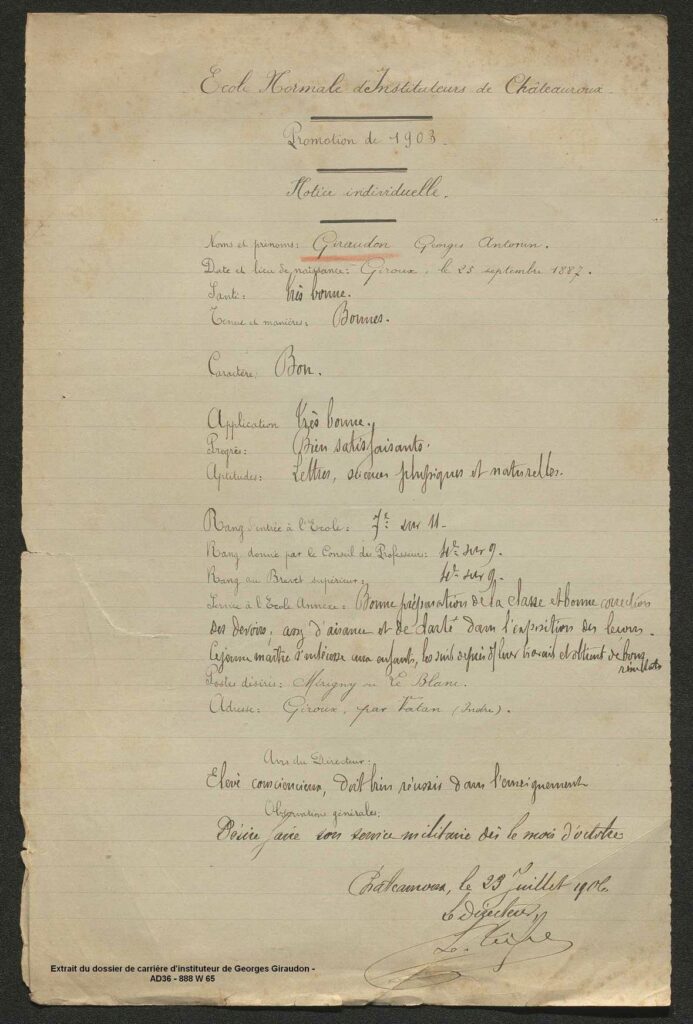 Ecole Normale d'Instituteurs de Châteauroux
Promotion de 1903.
Notice individuelle.
Noms et prénoms: Giraudon Georges Antonin.
Date et lieu de naissance: Giroux, le 25 septembre 1887.
Santé: très bonne.
Tenue et manières: Bonnes.
Caractère: Bon.
Application très bonne.
Progrès: Bien satisfaisants.
Aptitudes: Lettres, sciences physiques et naturelles.
Rang d'entrée à l'Ecole: 7e sur 11.
Rang donné par le Conseil des Professeurs: 4e sur 9.
Rang au Brevet supérieur: 4e sur 9.
Service à l'Ecole Annexe: Bonne préparation de la classe et bonne correction
des devoirs, assez d'aisance et de clarté dans l'exposition des leçons.
Ce jeune maître s'intéresse aux enfants, les suit leur travail et obtient de bons
résultats
Postes désirés: Mérigny ou Le Blanc.
Adresse: Giroux, par Vatan (Indre).
Avis du Directeur:
Elève consciencieux, doit bien réussir dans l'enseignement
Observations générales:
Désire faire son service militaire dès le mois d'octobre
Châteauroux, le 23 Juillet 1906
Le directeur
Extrait du dossier de carrière d'instituteur de Georges Giraudon -
AD36 - 888 W 65